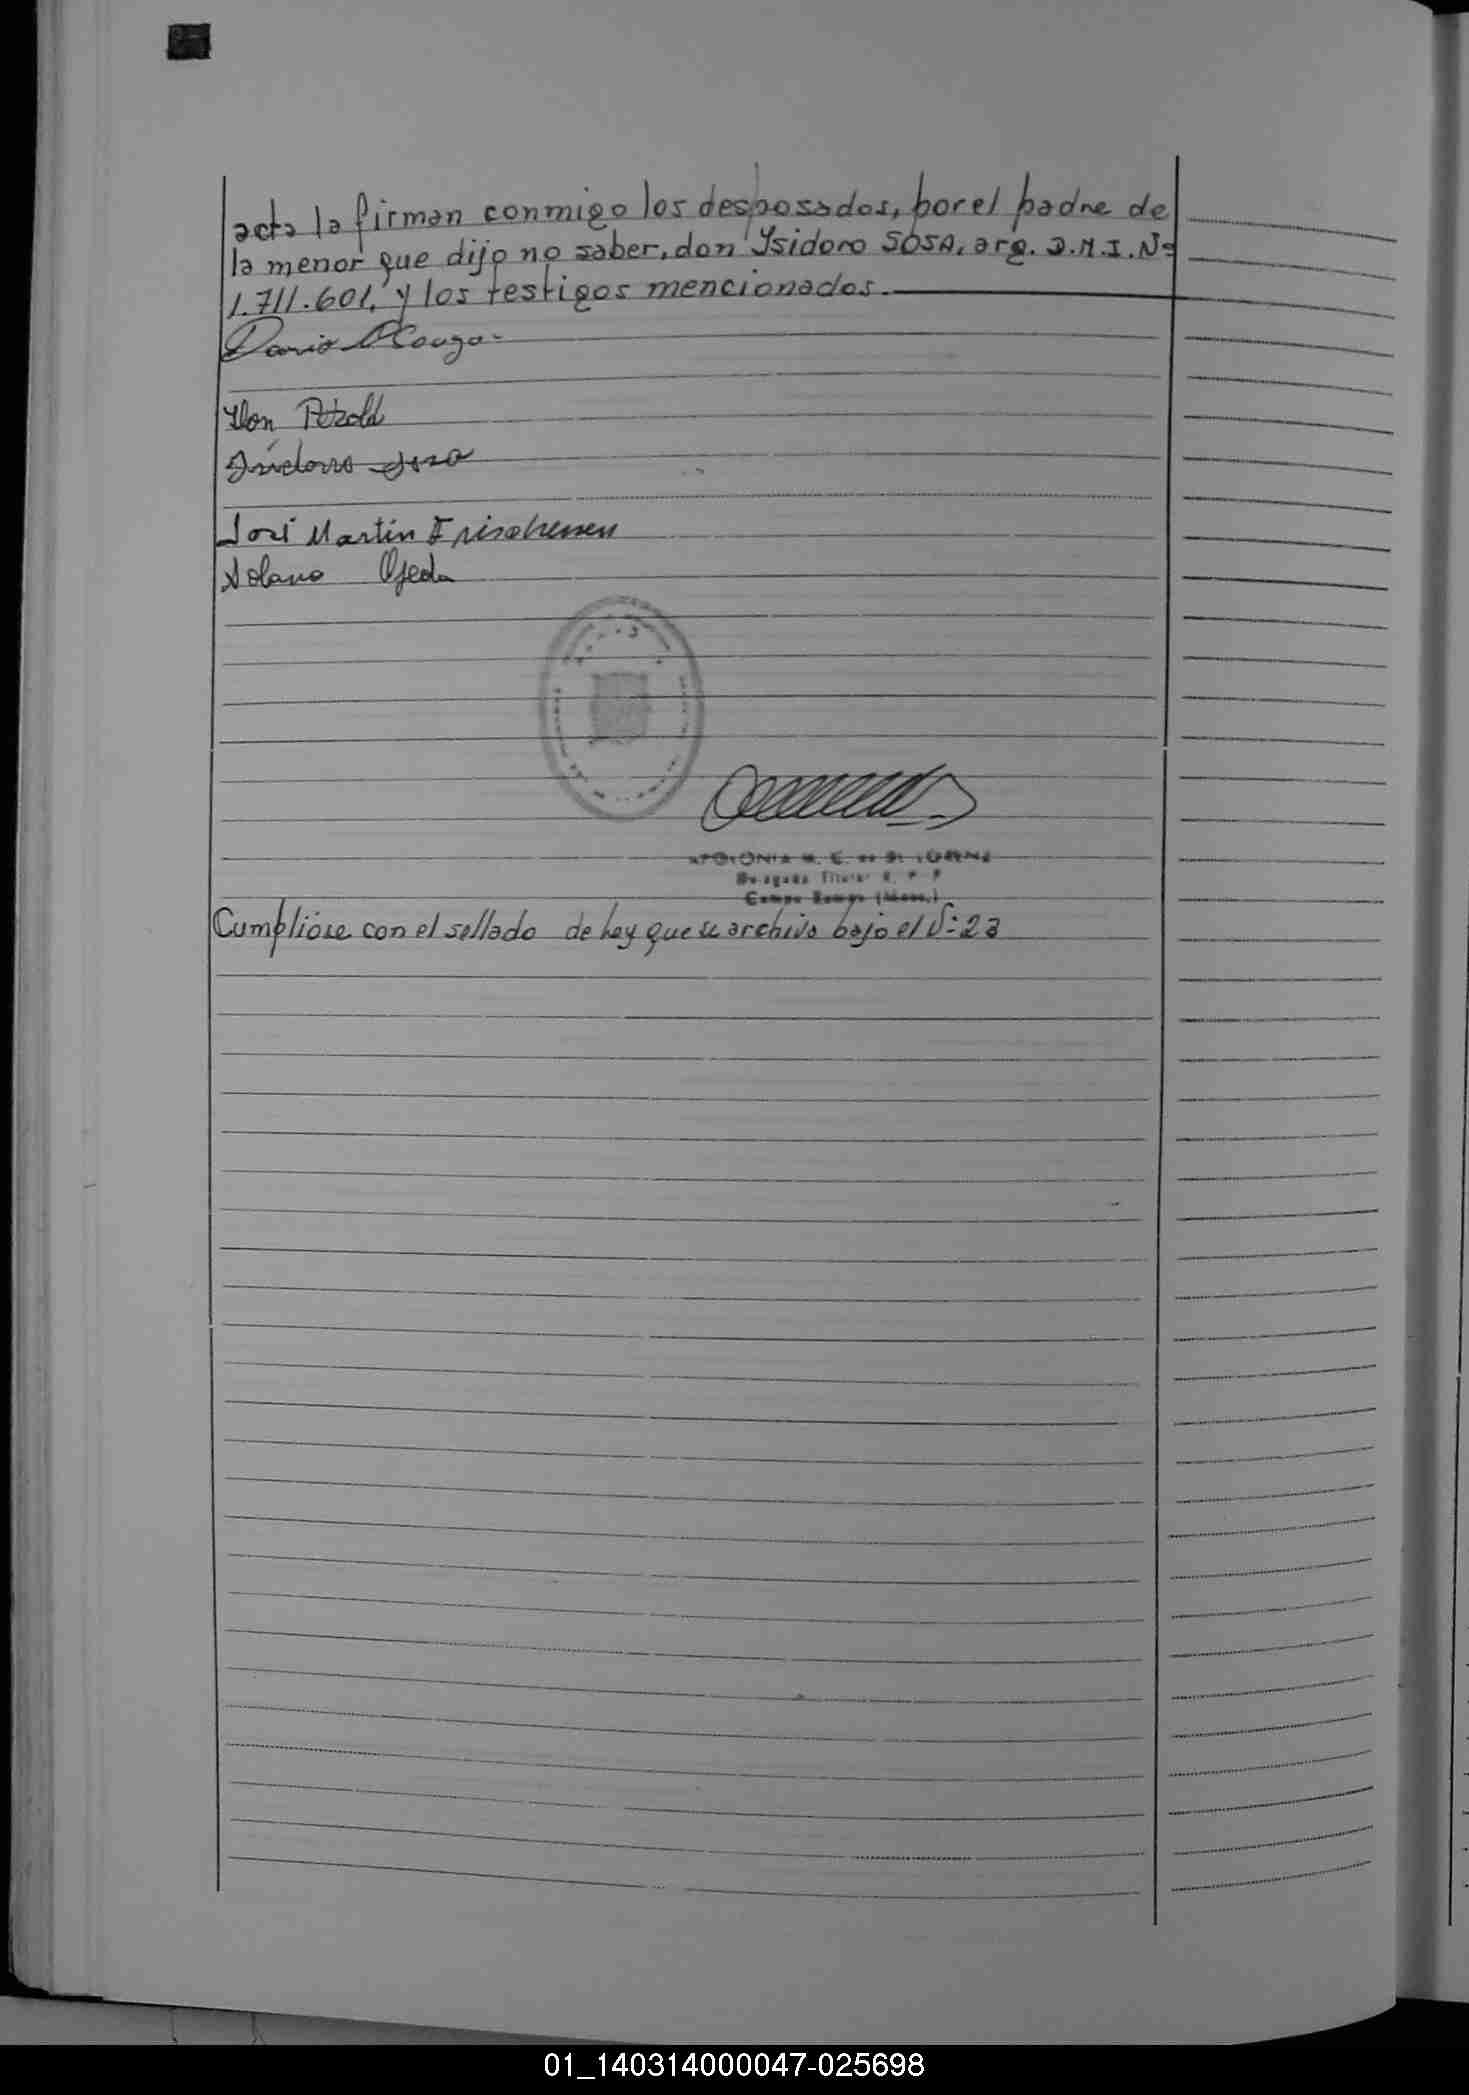 acta la firman conmigo los desposados, por el padre de
la menor que dijo no saber, don Ysidoro SOSA, arg. D.M.I. Nº
1.711.601, y los testigos mencionados.
Dario
Ilon Petzold
Isidoro Sosa
José Martin Frischenen
Solano Ojeda
APOLONIA M. C. de
Delegada Titular R. P. P.
Campo Ramon (Mnes.)
Cumplióse con el sellado de ley que se archiva bajo el Nº 23
01_140314000047-025698